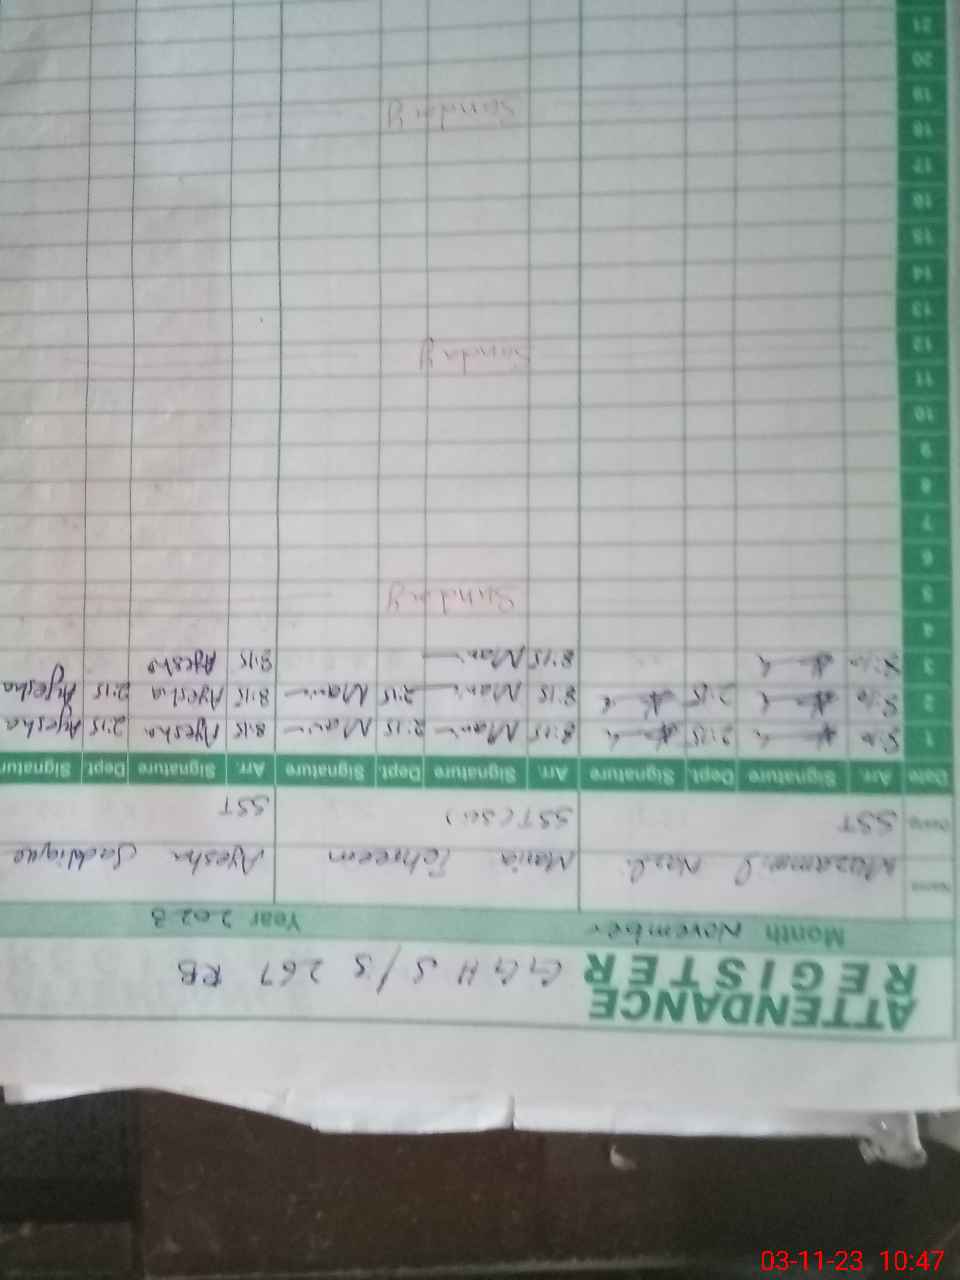 ATTENDANCE REGISTER GGHS S/S 267 RB
Month November Year 2023
Name Muzammil Maria Ayesha Saddique
Desig. SST SST (Sci) SST
Date Arr. Signature Dept. Signature Arr. Signature Dept. Signature Arr. Signature Dept. Signature
1 8:10 2:15 8:15 2:15 8:15 Ayesha 2:15 Ayesha
2 8:10 2:15 8:15 2:15 8:15 Ayesha 2:15 Ayesha
3 8:10 8:15 8:15 Ayesha
4
5 Sunday
6
7
8
9
10
11
12 Sunday
13
14
15
16
17
18
19 Sunday
20
21
03-11-23 10:47